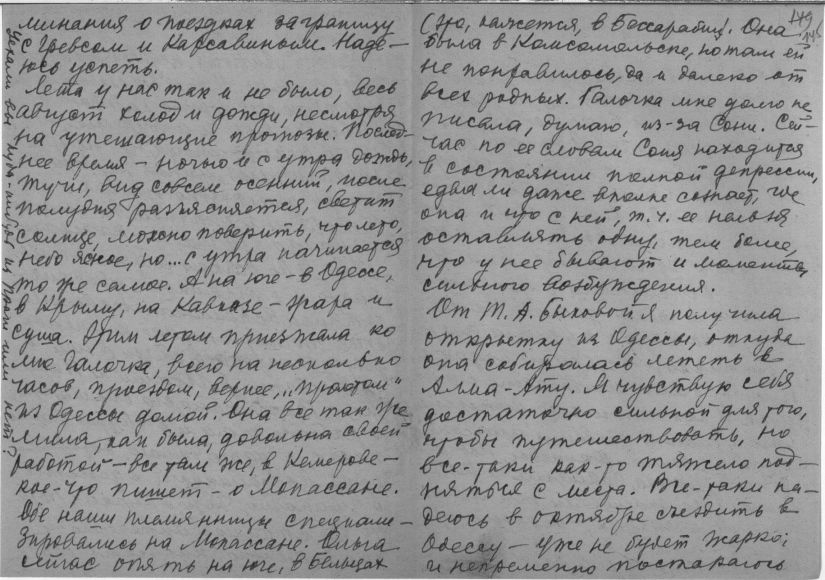 минания о поездках заграницу
с Гревсом и Карсавиным. Наде-
юсь успеть.
Лета у нас так и не было, весь
август холод и дожди, несмотря
на утешающие прогнозы. Послед-
нее время – ночью и с утра дождь,
тучи, вид совсем осенний, после
полудня разъясняется, светит
солнце, можно поверить, что лето,
небо ясное, но... с утра начинается
то же самое. А на юге – в Одессе,
в Крыму, на Кавказе – жара и
суша. Этим летом приезжала ко
мне Галочка, всего на несколько
часов, проездом, вернее, „пролетом"
из Одессы домой. Она все так же
мила, как была, довольна своей
работой – все там же, в Кемерове –
кое-что пишет – о Мопассане.
Обе наши племянницы специали-
зировались на Мопассане. Ольга
сейчас опять на юге, в Бельцах
Уехали вы куда-нибудь из или нет?
149
(это, кажется, в Бессарабии). Она
была в Комсомольске, но там ей
не понравилось, да и далеко от
всех родных. Галочка мне долго не
писала, думаю, из-за Сони. Сей-
час по ее словам Соня находится
в состоянии полной депрессии,
едва ли даже вполне сознает, где
она и что с ней, т.ч. ее нельзя
оставлять одну, тем более,
что у нее бывают и моменты
сильного возбуждения.
От Т. А. Быковой я получила
открытку из Одессы, откуда
она собиралась лететь в
Алма-Ату. Я чувствую себя
достаточно сильной для того,
чтобы путешествовать, но
все-таки как-то тяжело под-
няться с места. Все-таки на-
деюсь в октябре съездить в
Одессу – уже не будет жарко;
и непременно постараюсь